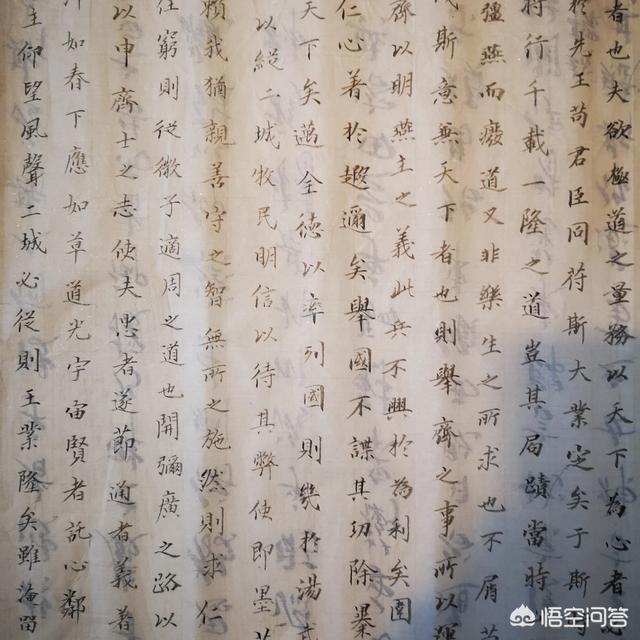 者也夫欲極道之量務以天下為心者必
於先王苟君臣同符斯大業定矣于斯時
將行千載一隆之道豈其局蹟當時
彊燕而廢道又非樂生之所求也不屑苟
斯意無天下者也則舉齊之事所以運
齊以明燕主之義此兵不興於為利矣圍
仁心著於遐邇矣舉國不謀其功除暴
天下矣邁全德以率列國則幾於湯武
以縱二城牧民明信以待其弊使即墨莒
賴我猶親善守之智無所之施然則求仁
任窮則從微子適周之道也開彌廣之路以
以申齊士之志使夫忠者遂節通者義著
如春下應如草道光宇宙賢者託心鄰
主仰望風聲二城必從則王業隆矣雖淹留
悟空问答